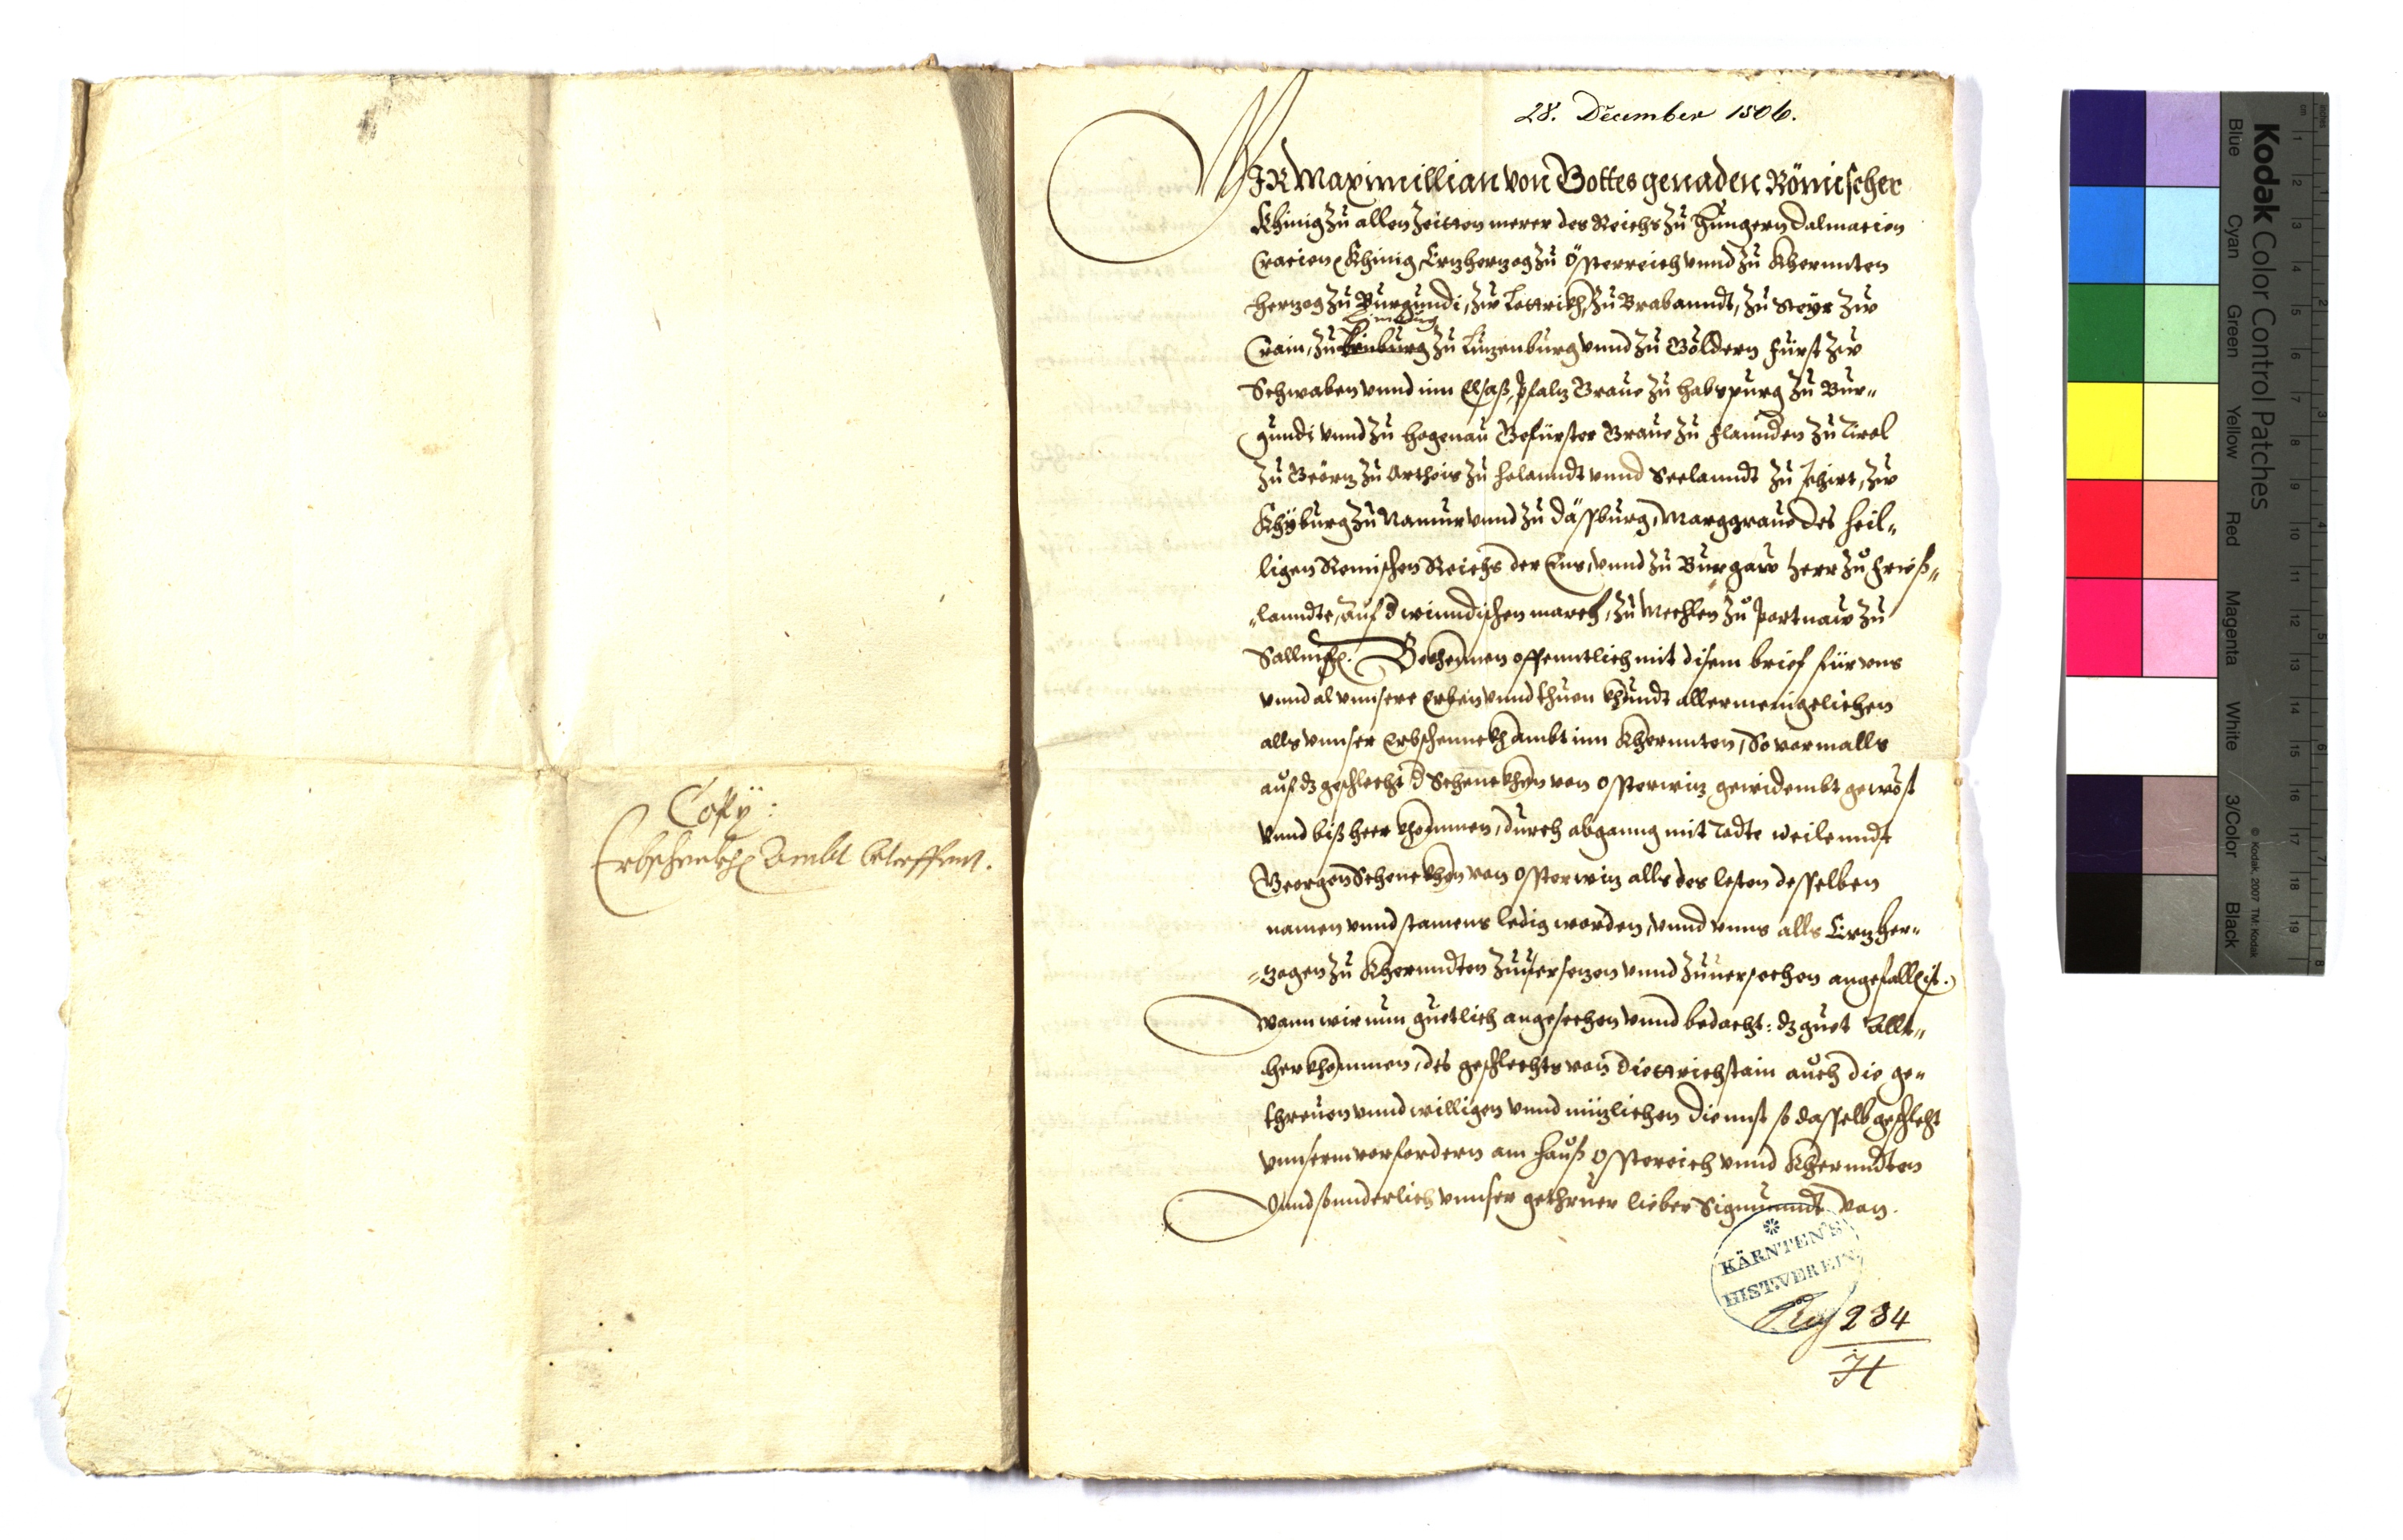 Copÿ:
Erbschenkh Ambt betreffent.
28. December 1506.
WIR Maximillian von Gottes genaden Römischer
Khinig zu allen Zeitten merer des Reichs zu Hungern Dalmacien
Cracien Khinig, Erzherzog zu Österreich vnnd zu Khernnten
Herzog zu Burgundi, zw Lottrikh, zu Brabanndt, zu Steyr zw
Limburg
Crain, zu zu Luzenburg vnnd zu Göldern Fürst zw
Schwaben vnnd im Elsaß, Pfalz Graue zu Habspurg zu Bur„
gundi vnnd zu Hegenau Gefürster Graue zu Flannden zu Tirol
zu Geörz zu Arthois zu Holanndt vnnd Seelanndt zu Phirt, zw
Khÿburg zu Namur vnnd zu Däffburg, Marggraue des Heil„
ligen Romischen Reichs der Enns, vnnd zu Burgaw Herr zu Frieß„
„lanndte, auf d winndischen march, zu Mechlen zu Portnaw zu
Sallins. Bekhennen offenntlich mit disem brief für vns
vnnd al vnnsere Erben vnnd thuen khundt allermenigelichen
alls vnnser Erbschennckh Ambt inn Khernnten, So vormalls
auf dz geschlecht d Schenckhen von Osterwiz gewidembt gewöst
vnnd biß heer khommen, durch abganng mit Todte weilenndt
Georgen Schenckhen von Osterwiz alls des lesten desselben
namen vnnd stamens ledig worden, vnnd vnns alls Erzher„
„zogen zu Khernndten zuuersezen vnnd zuuersechen angefall ist.
Wann wir nun guetlich angesechen vnnd bedacht: dz guet allt„
herkhommen, des geschlechts von Diettrichstain auch die ge„
threuen vnnd willigen vnnd nüzlichen Dienst so dasselb geschlecht
vnnserm vorfordern am Hauß Osstereich vnnd Khernndten
Vnnd sonnderlich vnnser gethruer lieber Sigmunndt von
KÄRNTEN'S
HIST.VEREIN
234
H
Kodak Color Control Patches
© Kodak, 2007 TM: Kodak
Blue Cyan Green Yellow Red Magenta White 3/Color Black
inches 1 2 3 4 5 6 7 8
cm 1 2 3 4 5 6 7 8 9 10 11 12 13 14 15 16 17 18 19